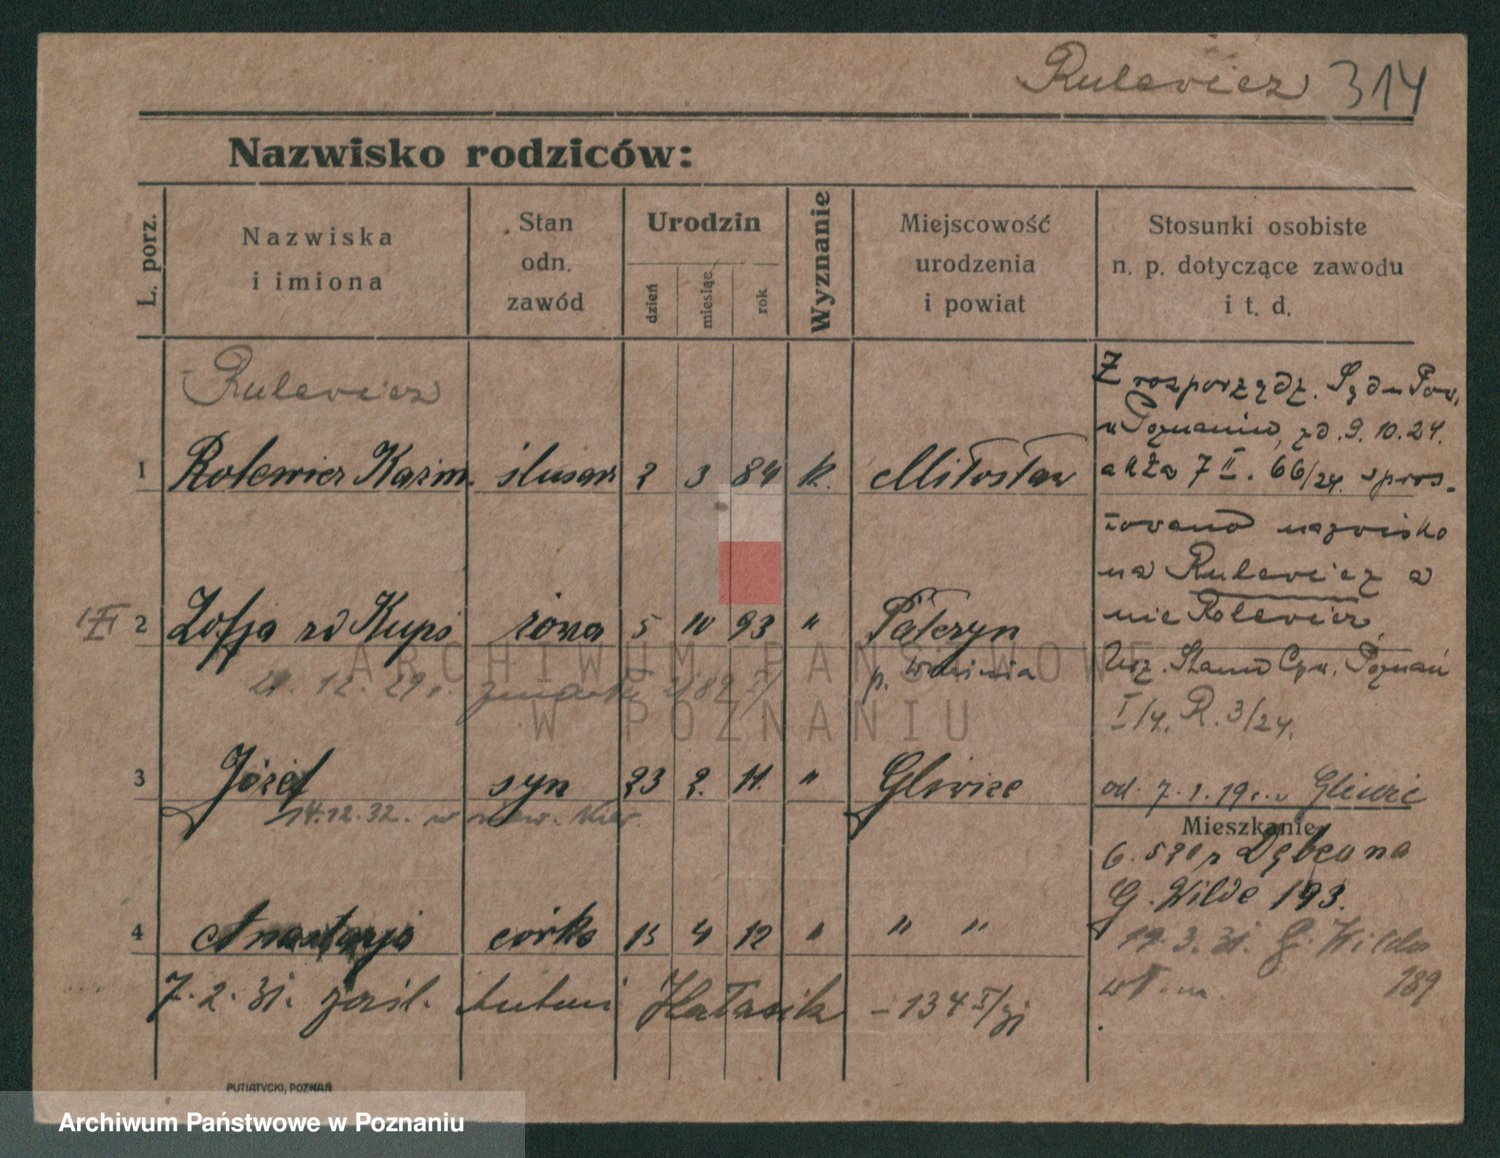 Rulewicz 314
Nazwisko rodziców:
L. porz.
Nazwiska i imiona
Stan odn. zawód
Urodzin
dzień miesiąc rok
Wyznanie
Miejscowość urodzenia i powiat
Stosunki osobiste n. p. dotyczące zawodu i t. d.
Rulewicz
1 Rolewicz Kazim. ślusarz 2 3 84 k. Miłosław
Z rozporządz. Sądu Pow.
w Poznaniu, zd. 9. 10. 24.
akta 7 II. 66/24. spros-
towano nazwisko
na Rulewicz a
nie Rolewicz
2 Zofja rd Kupś żona 5 10 93 "
p. Września
Urz. Stanu Cyw. Poznań
I/4. R. 3/24.
29 r. zmarła
3 Józef syn 23 2. 11. " Gliwice
14.12.32. w
od. 7. 1. 19
Mieszkanie
Dębcuna
G. Wilda 193.
4 Anastazja córka 15 4 12 " " "
19. 3. 31. G. Wilda
189
7. 2. 31. zaśl. Antoni Hałasik – 134
PUTIATYCKI, POZNAŃ
ARCHIWUM PAŃSTWOWE
W POZNANIU
Archiwum Państwowe w Poznaniu